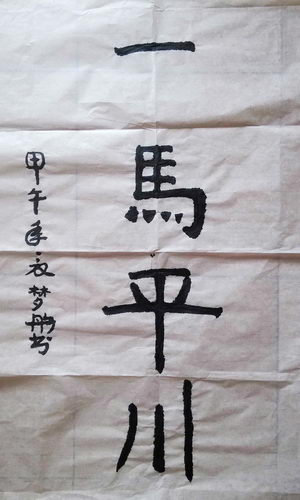 一馬平川
甲午年衣梦书